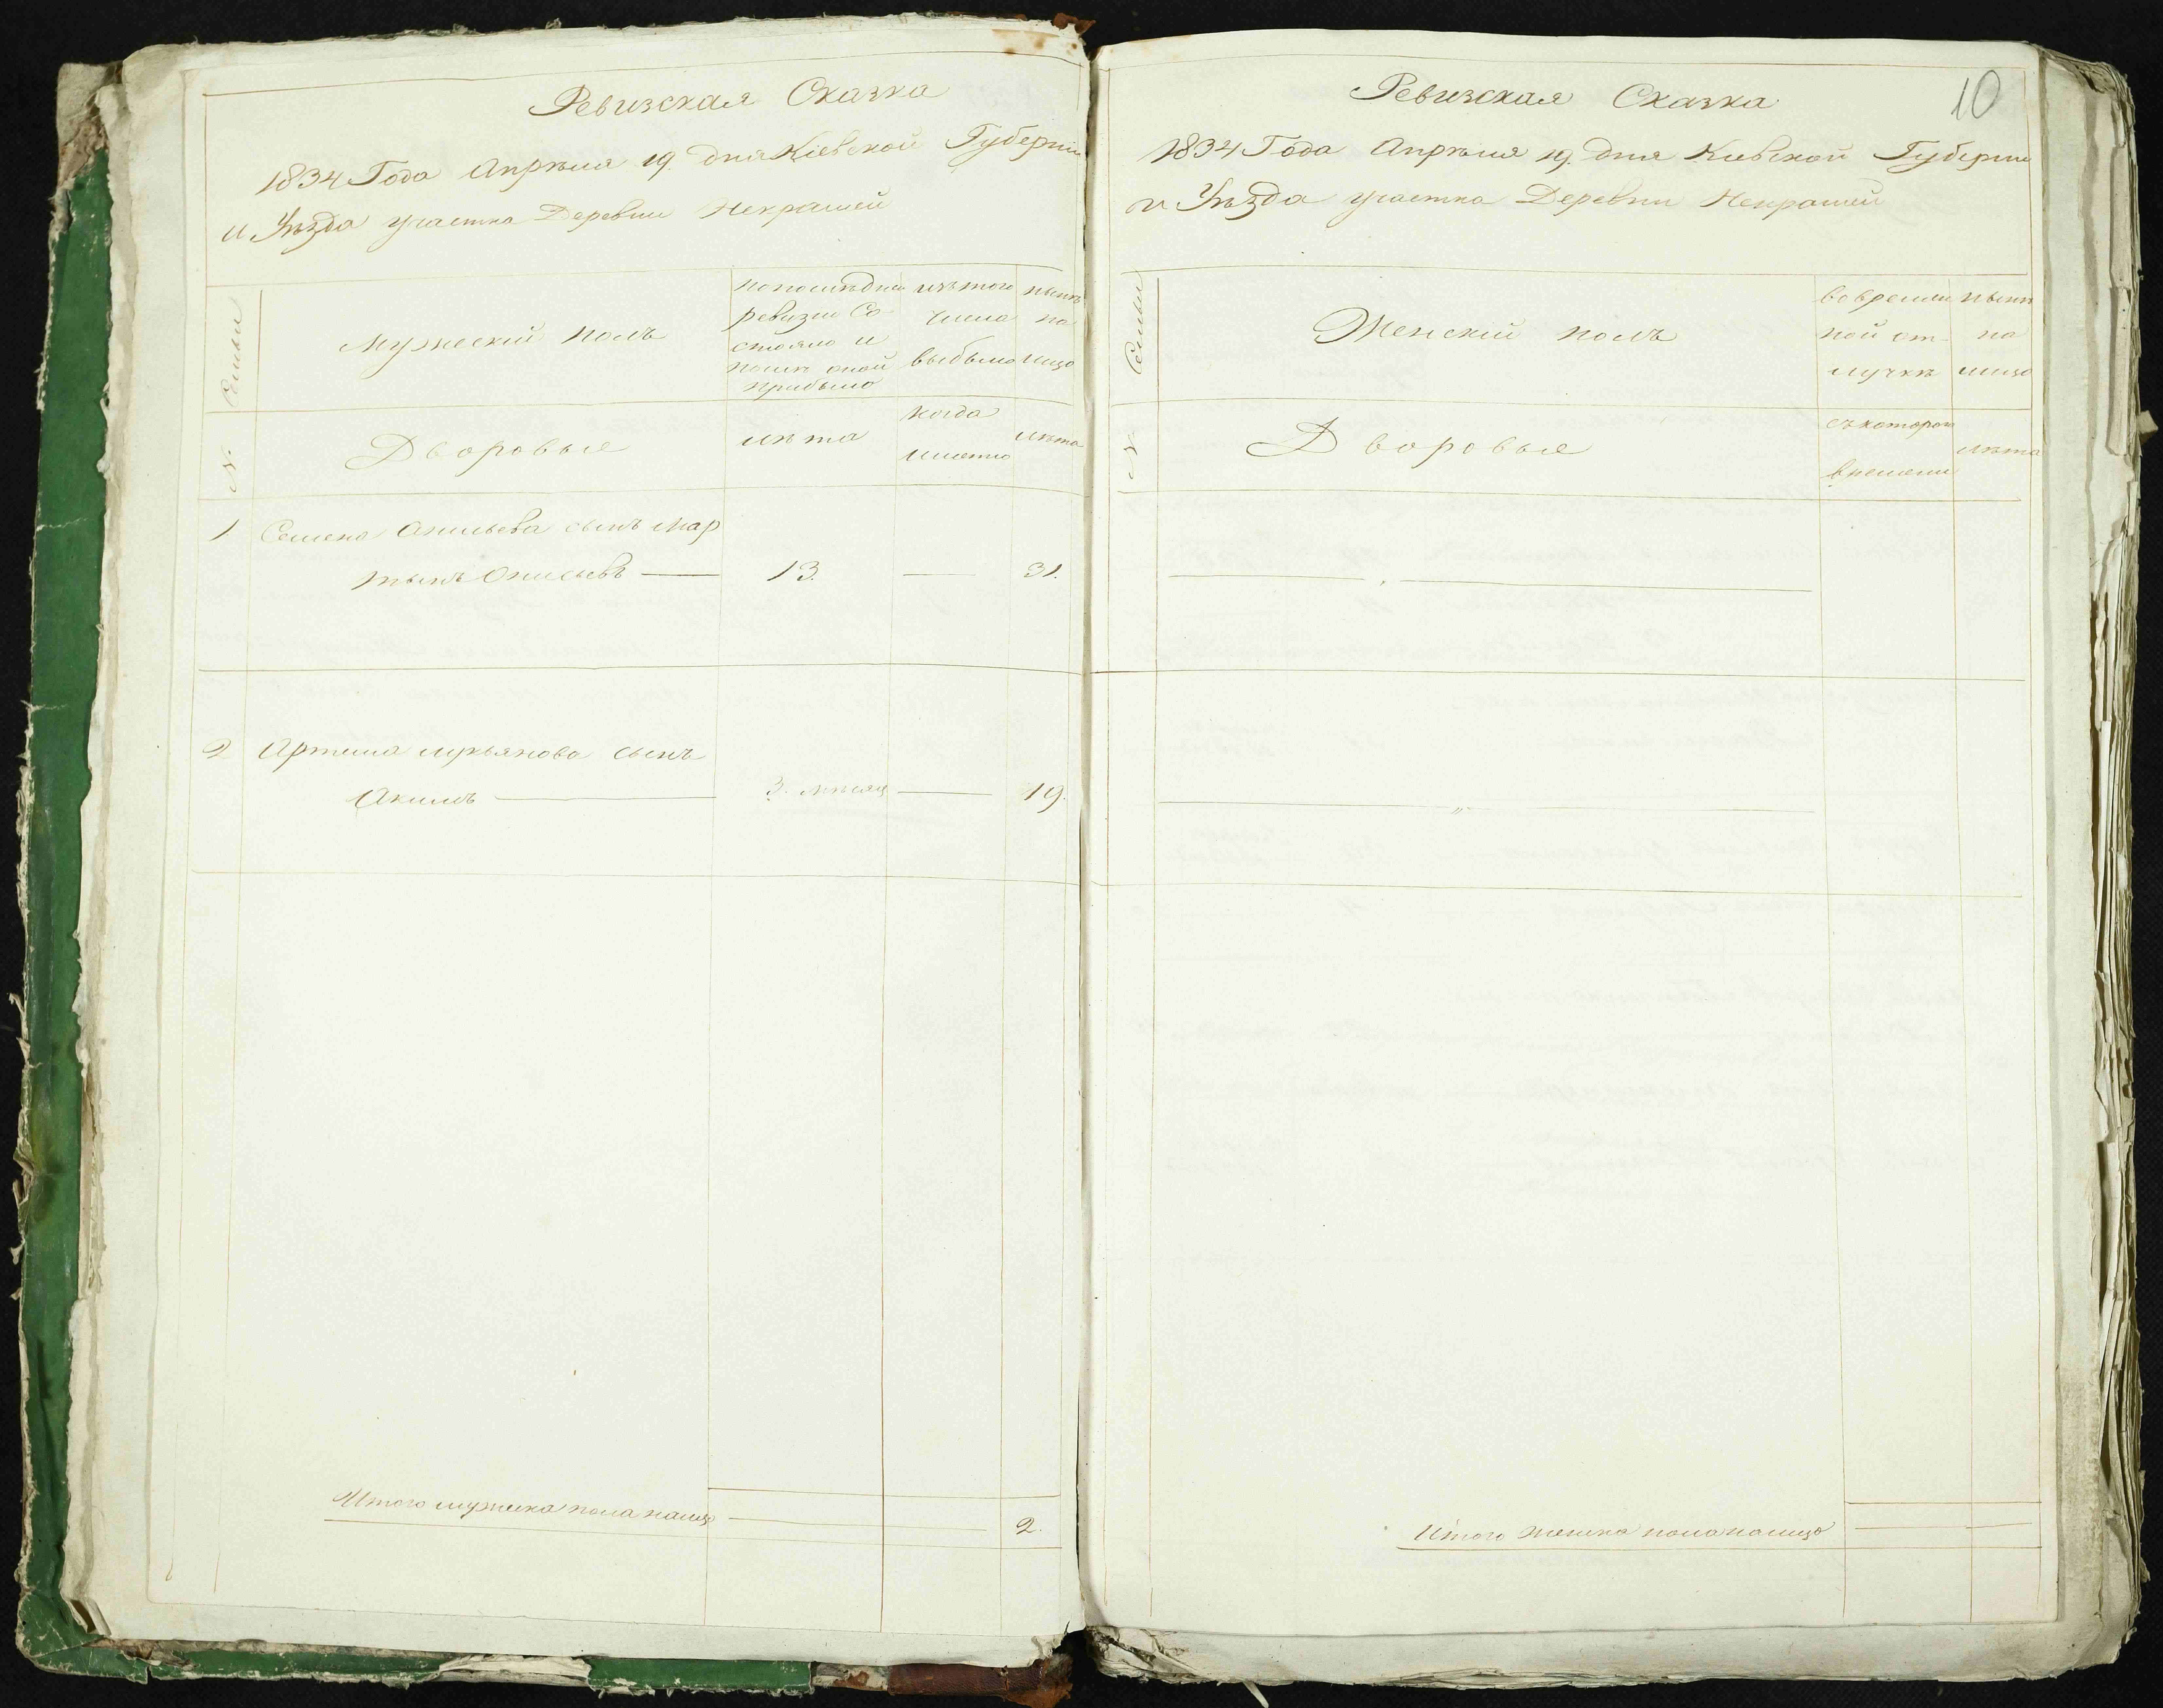 Ревизская Сказка
1834 Года Апрѣля 19. дня Кіевской Губерніи
и Уѣзда участка Деревни Некрашей
№ Семьи
Мужескій полъ
попослѣдней
ревизіи Со-
стояло и
послѣ оной
прибыло
изъ того
числа
выбыло
нынѣ
на
лицо
Дворовые
лѣта
когда
имянно
лѣта
1 Семена Анильева сынъ Мар
тынъ Онисьевъ — 13. — 31.
2 Артема Лукьянова сынъ
Акимъ — 3. мѣсяц — 19.
Итого мужеска пола налицо — 2.
10
Ревизская Сказка
1834 Года Апрѣля 19. дня Киевской Губерніи
и Уѣзда участка Деревни Некрашей
№ Семьи
Женский полъ
вовремян
ной от-
лучкѣ
нынѣ
на
лицо
Дворовые
съкоторого
времени
лѣта
Итого женска пола налицо —